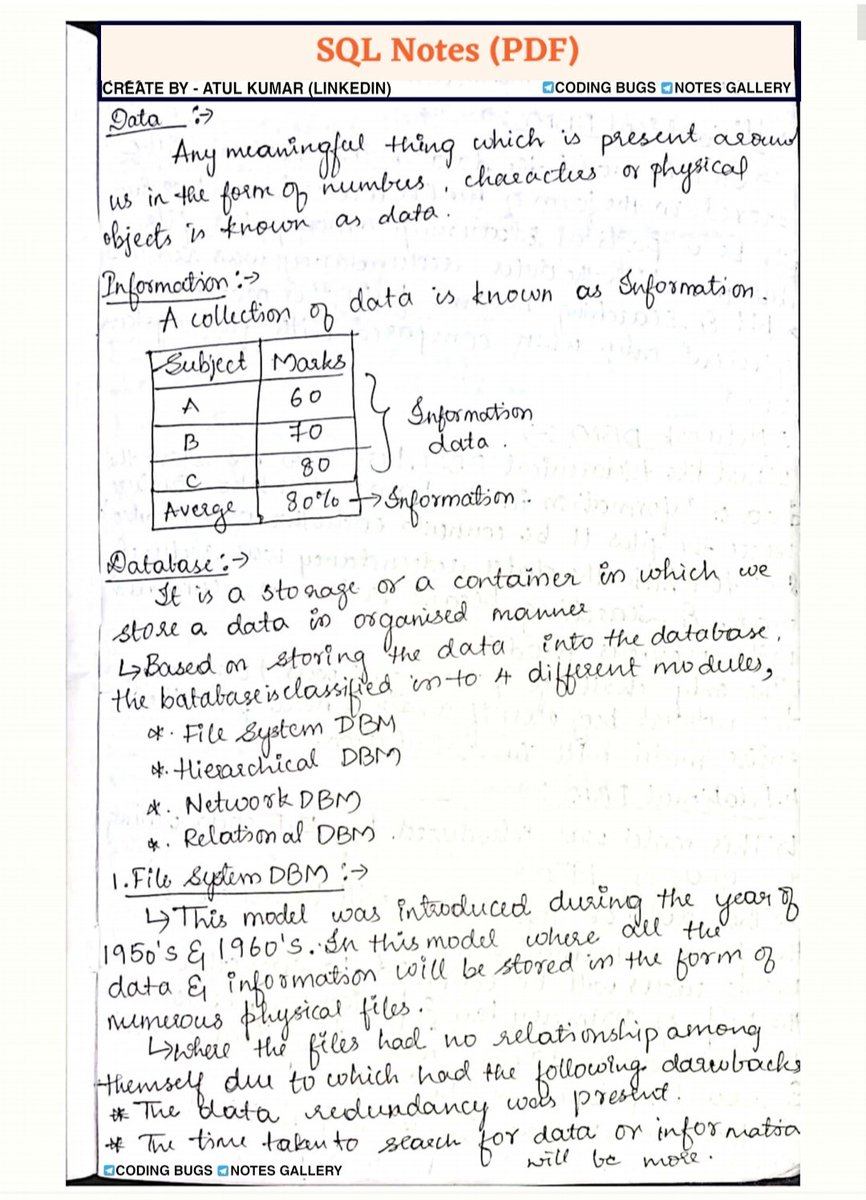 SQL Notes (PDF)
CREATE BY - ATUL KUMAR (LINKEDIN) CODING BUGS NOTES GALLERY
Data :->
Any meaningful thing which is present around
us in the form of numbers, characters or physical
objects is known as data.
Information :->
A collection of data is known as Information.
Subject Marks
A 60
B 70
C 80
Information
data.
Averge 80% -> Information.
Database :->
It is a storage or a container in which we
store a data in organised manner
↳ Based on storing the data into the database,
the batabase is classified in-to 4 different modules,
*. File System DBM
*. Hierarchical DBM
*. Network DBM
*. Relational DBM.
1. File System DBM :->
↳ This model was introduced during the year of
1950's & 1960's. In this model where all the
data & information will be stored in the form of
numerous physical files.
↳ where the files had no relationship among
themself due to which had the following darwbacks
* The data redundancy was present.
* The time taken to search for data or informatia
will be more.
CODING BUGS NOTES GALLERY